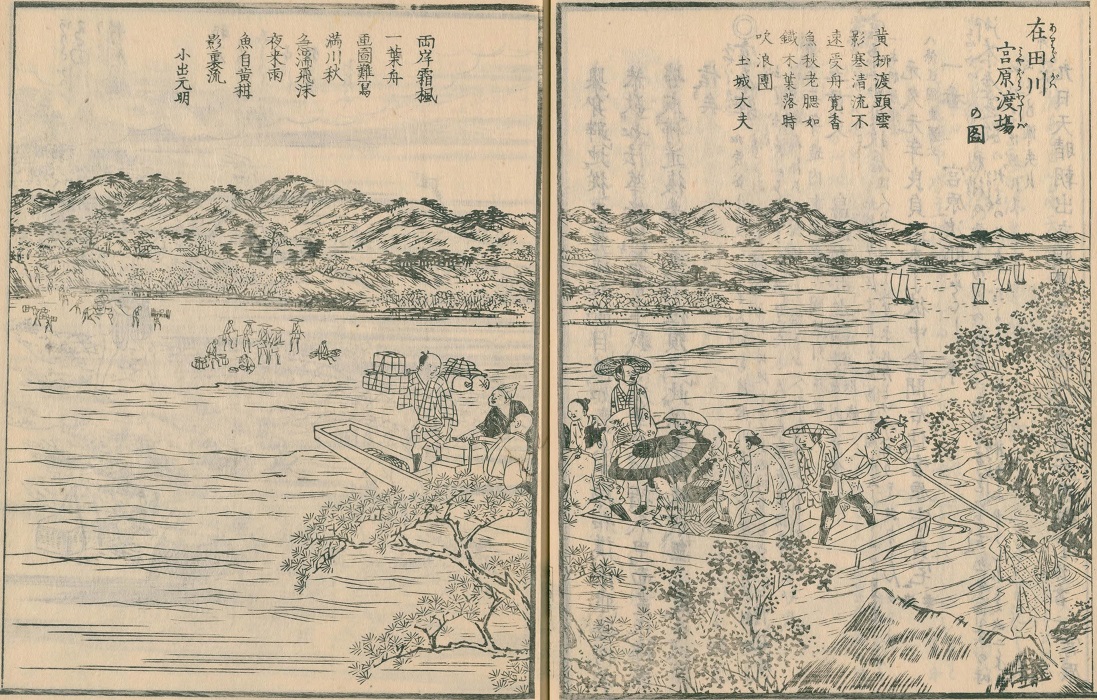 在田川
宮原渡場
の図
黄柳渡頭雲
影寒清流不
速受舟寛香
魚秋老腮如
鐵木葉落時
吹浪團
土城大夫
両岸霜楓
一葉舟
画圖難寫
満川秋
急湍飛沫
夜来雨
魚自黄
影裏流
小出元明